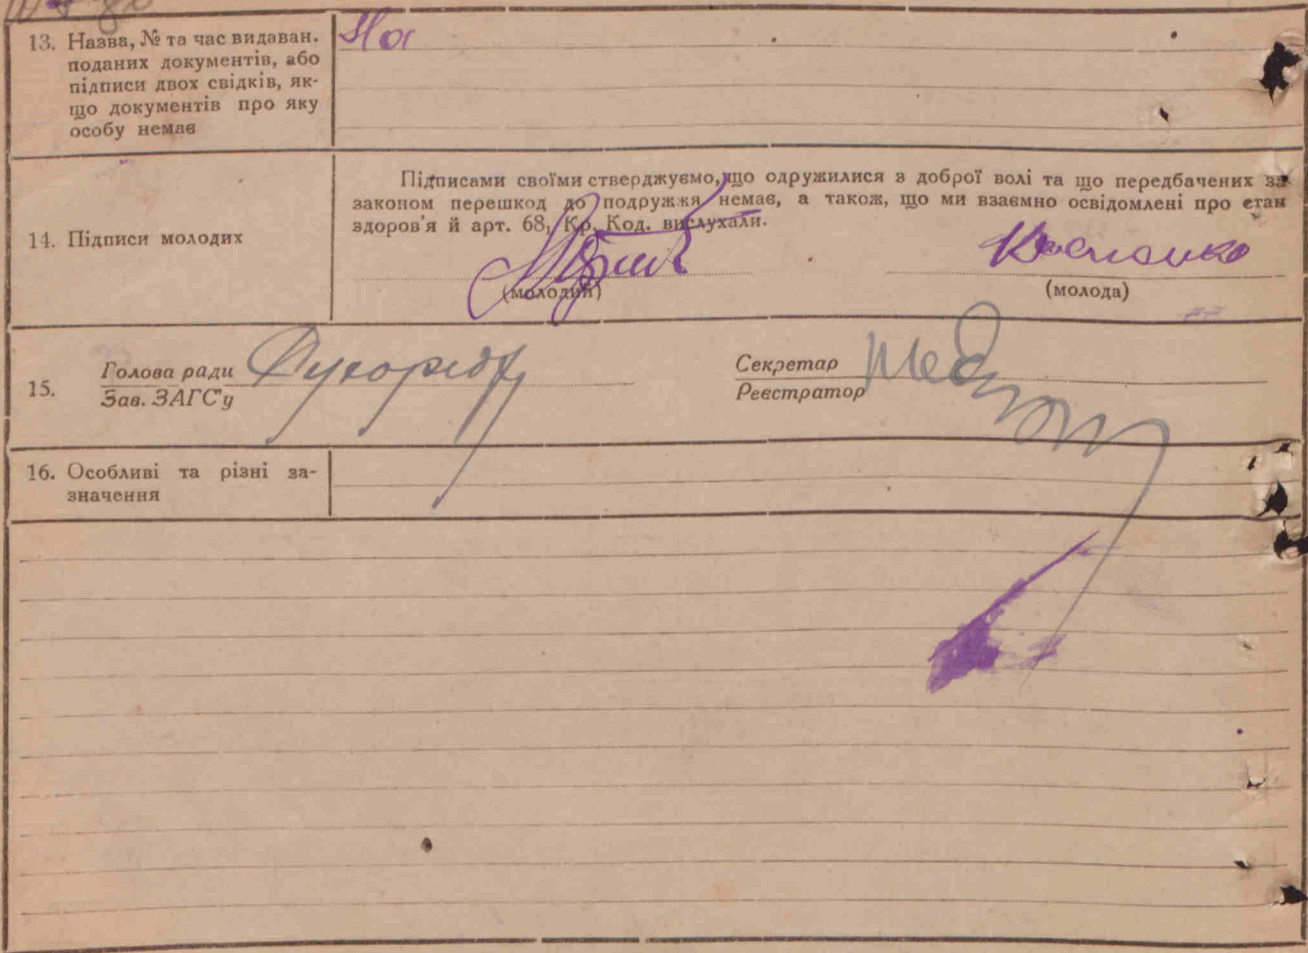 13. Назва, № та час видаван.
поданих документів, або
підписи двох свідків, як-
що документів про яку
особу немає
14. Підписи молодих
Підписами своїми стверджуємо, що одружилися з доброї волі та що передбачених за
законом перешкод до подружжя немає, а також, що ми взаємно освідомлені про стан
здоров'я й арт. 68, Кр. Код. вислухали.
(молодий)
(молода)
15. Голова ради
Зав. ЗАГС'у
Секретар
Реєстратор
16. Особливі та різні за-
значення